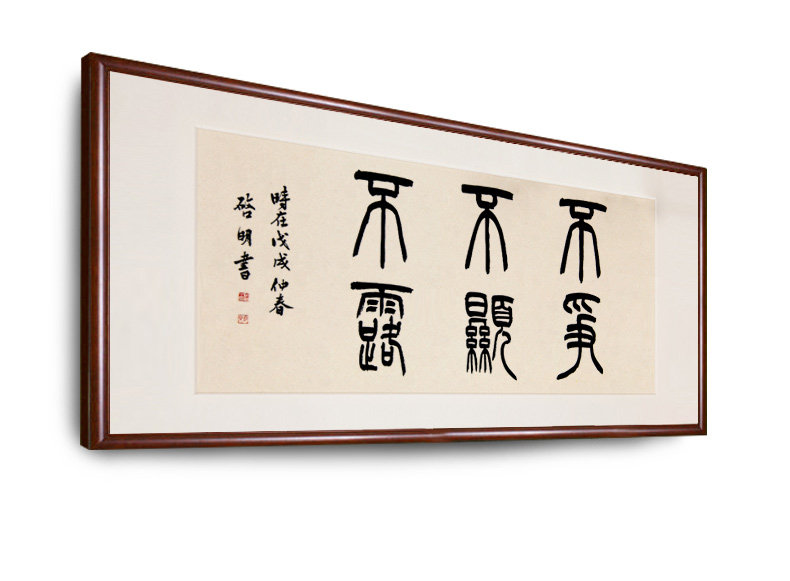 不爭
不顯
不露
時在戊戌仲春
啓明書